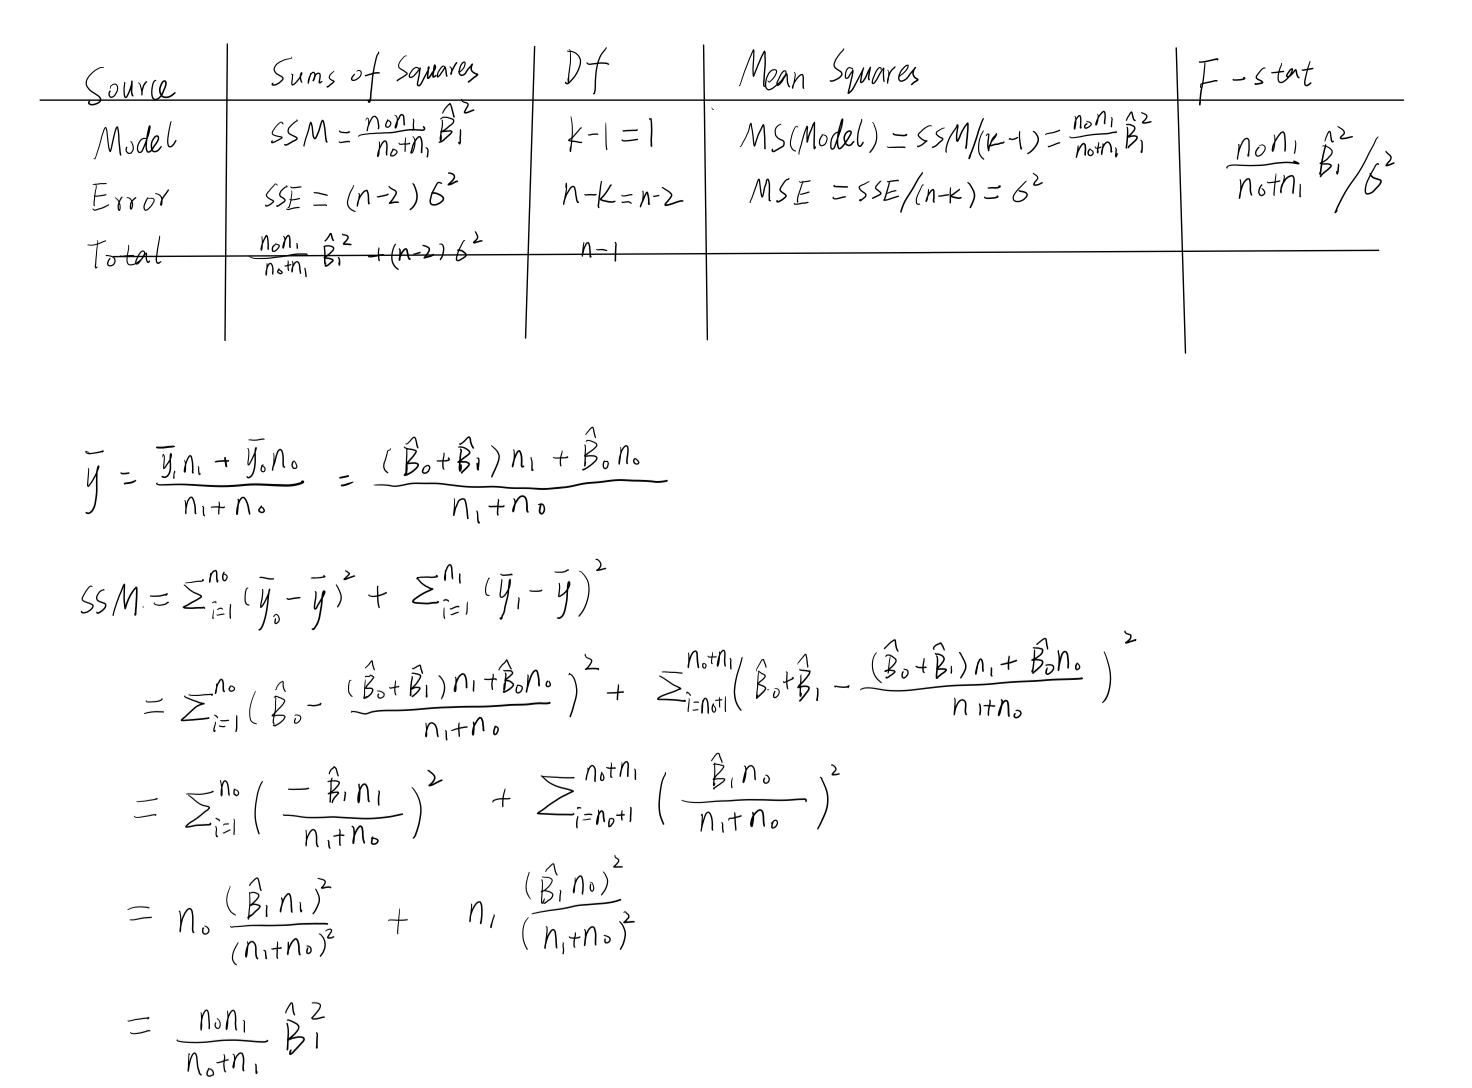 Source Sums of Squares Df Mean Squares F-stat
Model SSM = \frac{n_0 n_1}{n_0+n_1} \hat{B}_1^2 k-1=1 MS(Model) = SSM/(k-1) = \frac{n_0 n_1}{n_0+n_1} \hat{B}_1^2 \frac{n_0 n_1}{n_0+n_1} \hat{B}_1^2 / 6^2
Error SSE = (n-2) 6^2 n-k=n-2 MSE = SSE/(n-k) = 6^2
Total \frac{n_0 n_1}{n_0+n_1} \hat{B}_1^2 + (n-2) 6^2 n-1
\bar{y} = \frac{\bar{y}_1 n_1 + \bar{y}_0 n_0}{n_1+n_0} = \frac{(\hat{B}_0+\hat{B}_1) n_1 + \hat{B}_0 n_0}{n_1+n_0}
SSM = \sum_{i=1}^{n_0} (\bar{y}_0 - \bar{y})^2 + \sum_{i=1}^{n_1} (\bar{y}_1 - \bar{y})^2
= \sum_{i=1}^{n_0} (\hat{B}_0 - \frac{(\hat{B}_0+\hat{B}_1) n_1 + \hat{B}_0 n_0}{n_1+n_0})^2 + \sum_{i=n_0+1}^{n_0+n_1} (\hat{B}_0+\hat{B}_1 - \frac{(\hat{B}_0+\hat{B}_1) n_1 + \hat{B}_0 n_0}{n_1+n_0})^2
= \sum_{i=1}^{n_0} (\frac{-\hat{B}_1 n_1}{n_1+n_0})^2 + \sum_{i=n_0+1}^{n_0+n_1} (\frac{\hat{B}_1 n_0}{n_1+n_0})^2
= n_0 \frac{(\hat{B}_1 n_1)^2}{(n_1+n_0)^2} + n_1 \frac{(\hat{B}_1 n_0)^2}{(n_1+n_0)^2}
= \frac{n_0 n_1}{n_0+n_1} \hat{B}_1^2